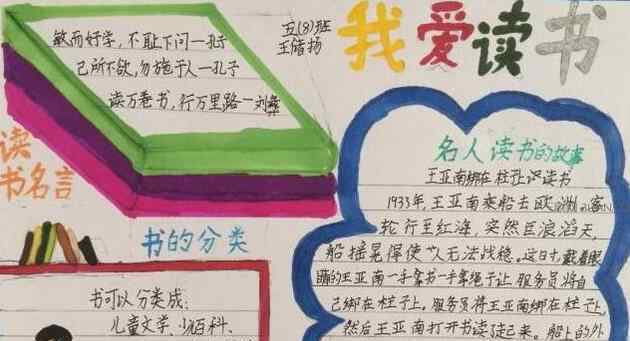 我爱读书
五(8)班
王储扬
敏而好学,不耻下问—孔子
己所不欲,勿施于人—孔子
读万卷书,行万里路—刘彝
读
书名言
书的分类
书可以分类成:
儿童文学、少百科、
名人读书的故事
王亚南绑在柱子上读书
1933年,王亚南乘船去欧洲。客
轮行至红海,突然巨浪滔天,
船摇晃得使人无法战稳。这时,戴着眼
镜的王亚南一手拿书一手拿绳子让服务员将自
己绑在柱子上。服务员将王亚南绑在柱子上,
然后王亚南打开书读了起来。船上的外